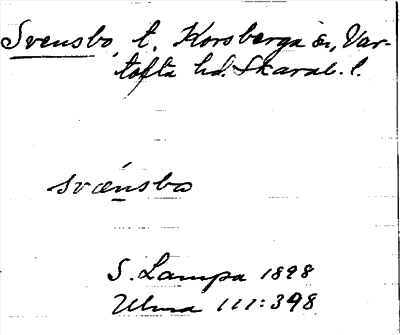 Svensbo, t. Korsberga sn, Var-
tofta hd. Skarab. l.
svǽnsbo
S. Lampa 1898
Ulma 111:398